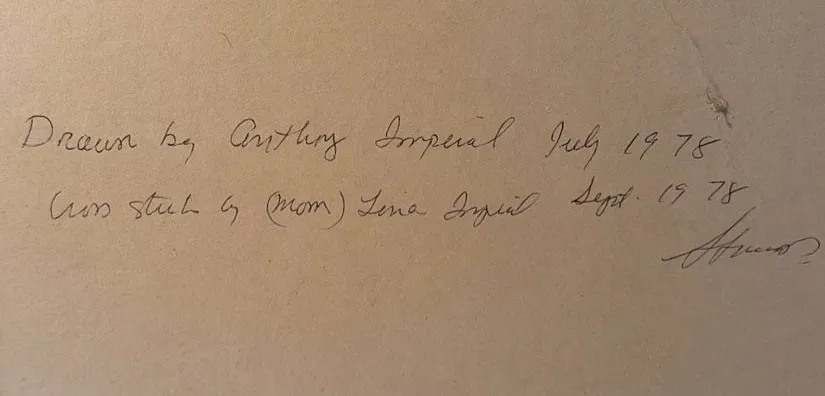 Drawn by Anthony Imperial July 1978
Cross stich by (Mom) Lina Imperial Sept. 1978